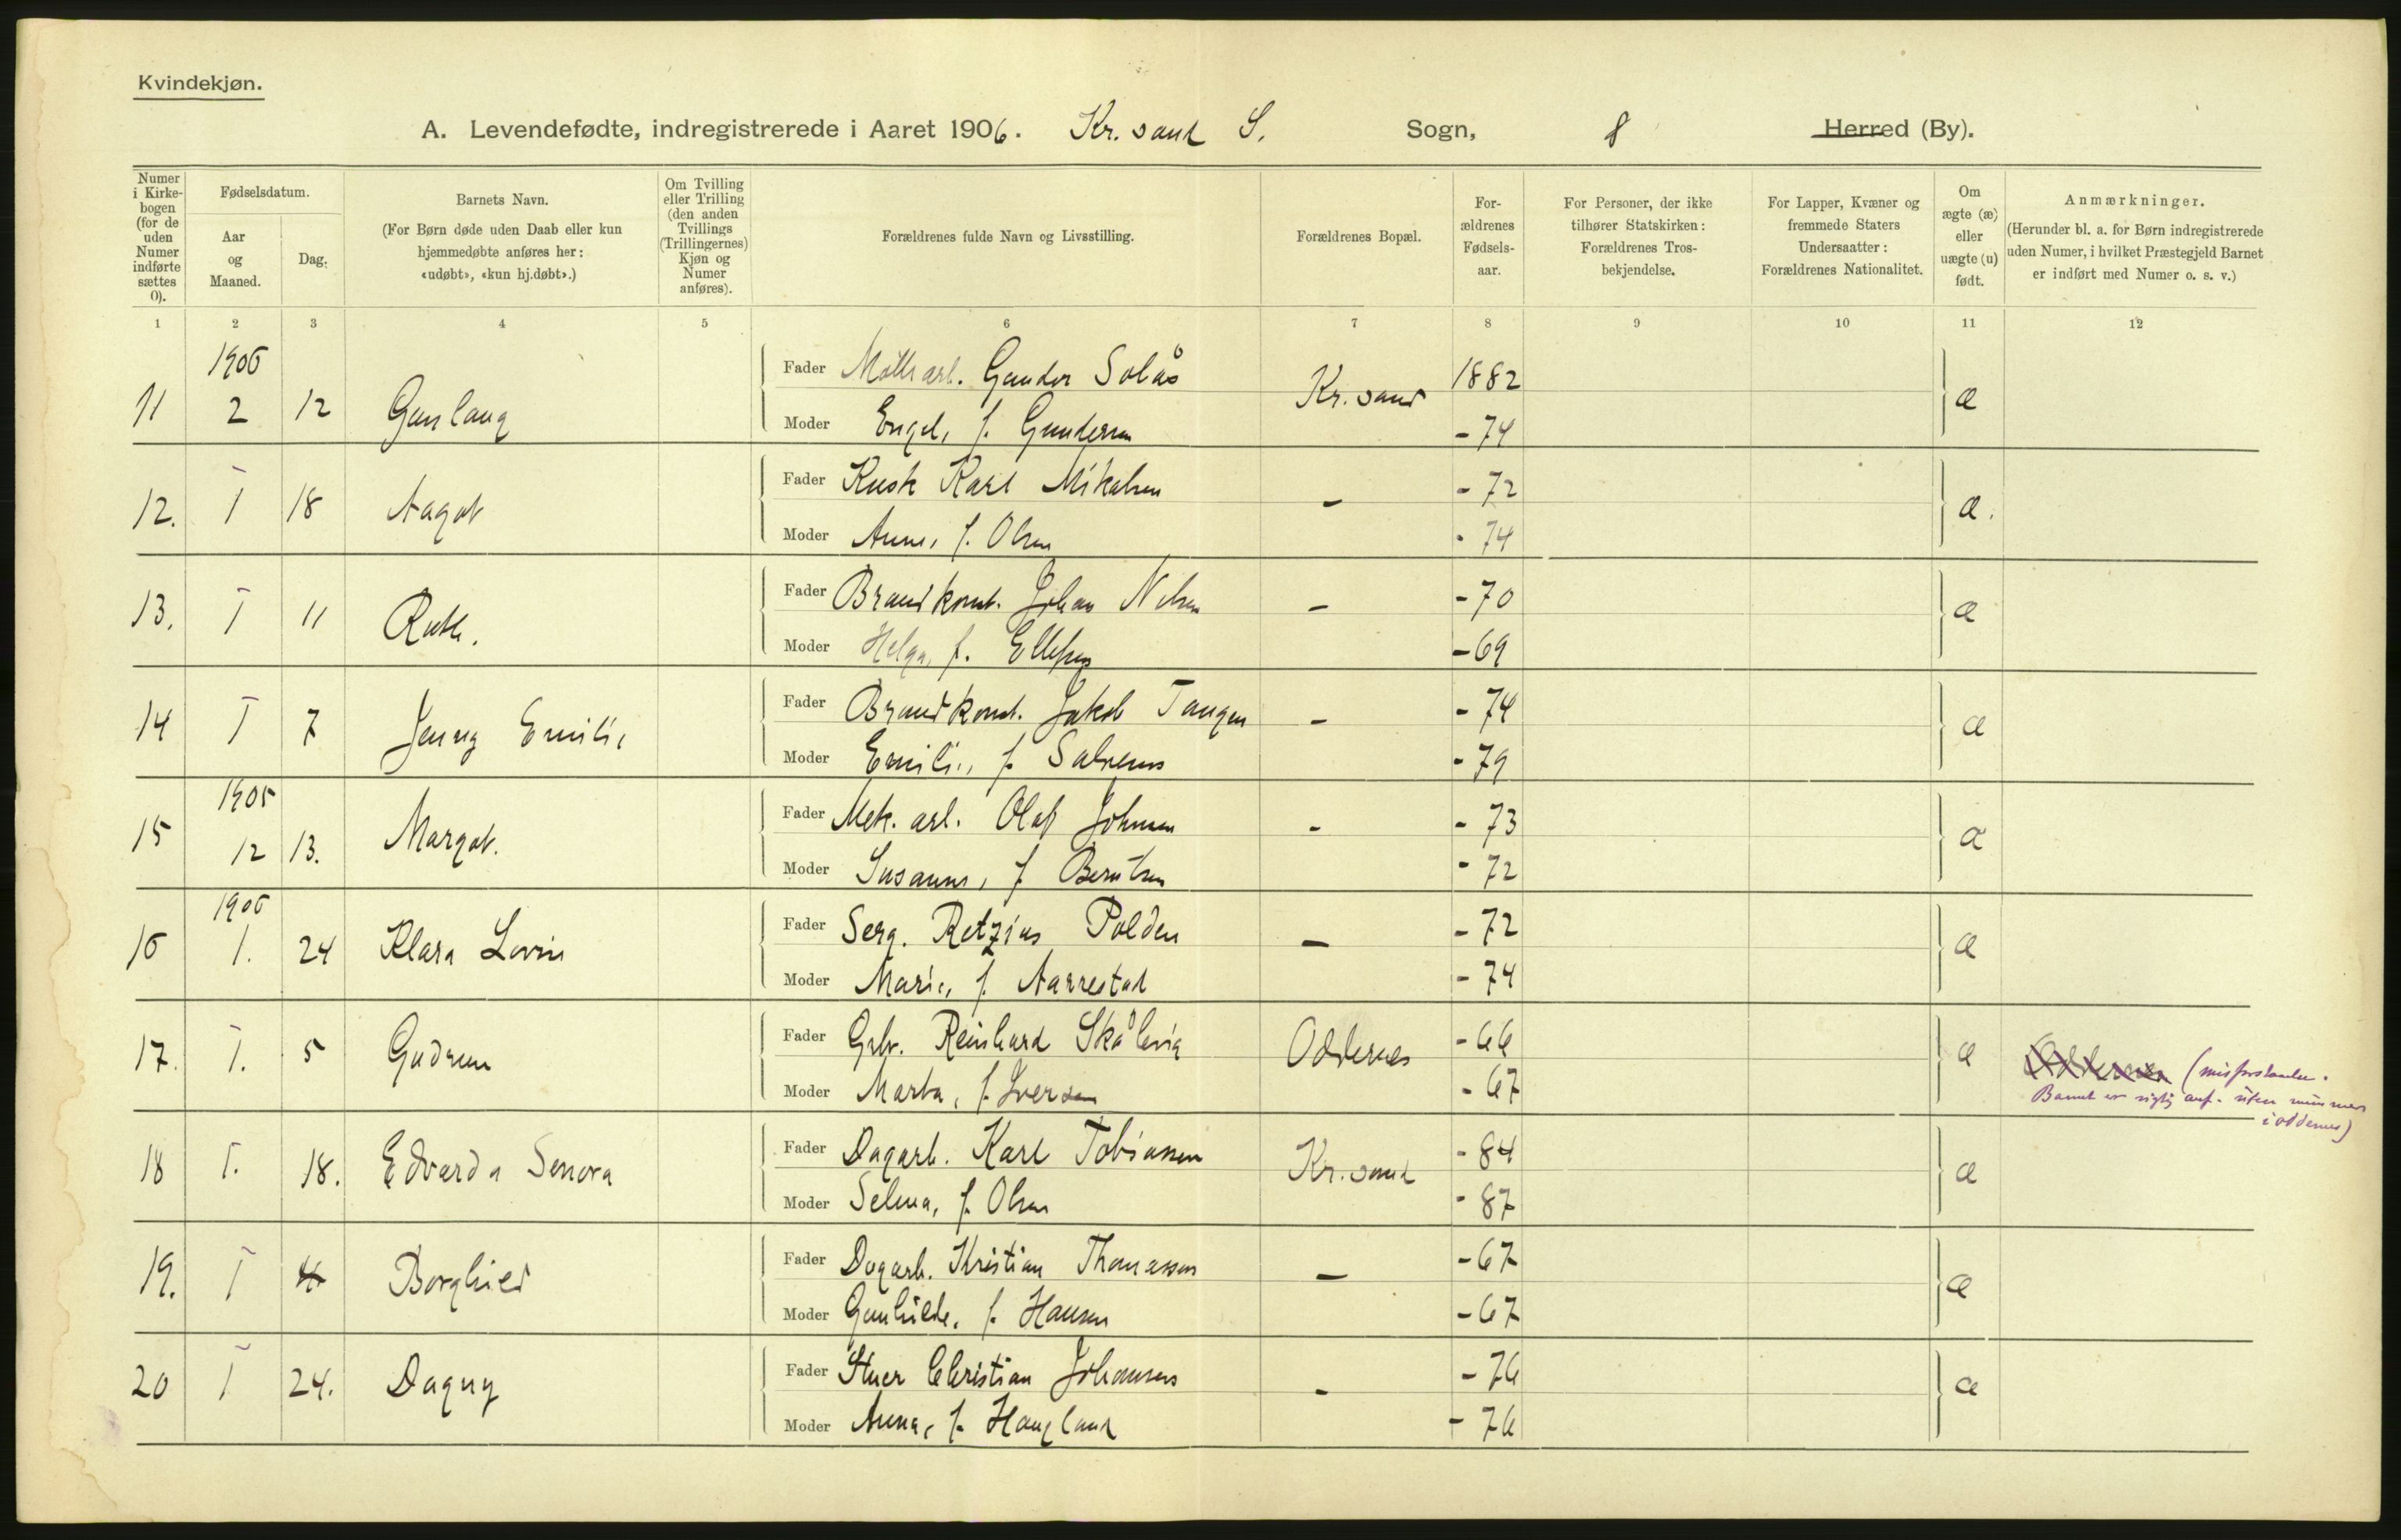 Kvindekjøn.
A. Levendefødte, indregistrerede i Aaret 1906. Kr. sand S. Sogn, 8 Herred (By).
Numer i Kirkebogen (for de uden Numer indførte sættes 0).
Fødselsdatum.
Aar og Maaned.
Dag.
Barnets Navn.
(For Børn døde uden Daab eller kun hjemmedøbte anføres her: «udøbt», «kun hj.døbt».)
Om Tvilling eller Trilling (den anden Tvillings (Trillingernes) Kjøn og Numer anføres).
Forældrenes fulde Navn og Livsstilling.
Forældrenes Bopæl.
Forældrenes Fødselsaar.
For Personer, der ikke tilhører Statskirken: Forældrenes Trosbekjendelse.
For Lapper, Kvæner og fremmede Staters Undersaatter: Forældrenes Nationalitet.
Om ægte (æ) eller uægte (u) født.
Anmærkninger.
(Herunder bl. a. for Børn indregistrerede uden Numer, i hvilket Præstegjeld Barnet er indført med Numer o. s. v.)
1 2 3 4 5 6 7 8 9 10 11 12
1906
Fader Møllearb. Gunder Solås 1882
11 2 12 Gunlaug Kr. sand æ
Moder Engel, f. Gundersen - 74
Fader Kusk Karl Mikalsen - 72
12. 1 18 Aagot - æ.
Moder Anne, f. Olsen - 74
Fader Brandkonst. Johan Nilsen - 70
13. 1 11 Ruth. - æ
Moder Helga, f. Ellefsen - 69
Fader Brandkonst. Jakob Tangen - 74
14 1 7 Jenny Emilie - æ
Moder Emilie, f. Salvesens - 79
1905
Fader Mek. arb. Olaf Johnsen - 73
15 12 13. Margot. - æ
Moder Susanne, f Berntsen - 72
1906
Fader Serg. Retzius Polden - 72
16 1. 24 Klara Lovise - æ
Moder Marie, f. Aarrestad - 74
Fader Grbr. Reinhard Skålevig - 66
17. 1. 5 Gudrun Oddernes æ Oddernes (misforstaaelse.
Moder Marta, f. Iversen - 67
Barnet er rigtig anf. uten nummer
i Oddernes)
Fader Dagarb. Karl Tobiassen - 84
18 1. 18. Edvarda Senora Kr. sand æ
Moder Selma, f. Olsen - 87
Fader Dagarb. Kristian Thomassen - 67
19. 1 Borghild - æ
Moder Gunhilde, f. Hansen - 67
Fader Stuer Christian Johansen - 76
20 1 24. Dagny - æ
Moder Anna, f. Haugland - 76